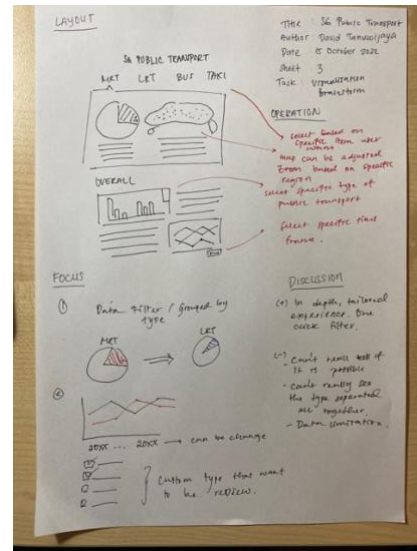 LAYOUT
Title : SG Public Transport
Author : David
Date : 15 October 2022
Sheet : 3
Task : Visualization
Brainstorm
SG PUBLIC TRANSPORT
MRT LRT BUS TAXI
OPERATION
select based on
specific item user
map can be adjusted
Zoom based on specific
region
select specific type of
public transport
Select specific time
frame.
OVERALL
FOCUS
① Data Filter / grouped by
type
MRT
LRT
②
20XX ... 20XX → can be change
Custom type that want
to be review.
DISCUSSION
(+) In depth, tailored
experience. One
click filter.
(-) - Can't really
it is possible
- Can't really see
the type separated
all together.
- Data limitation.